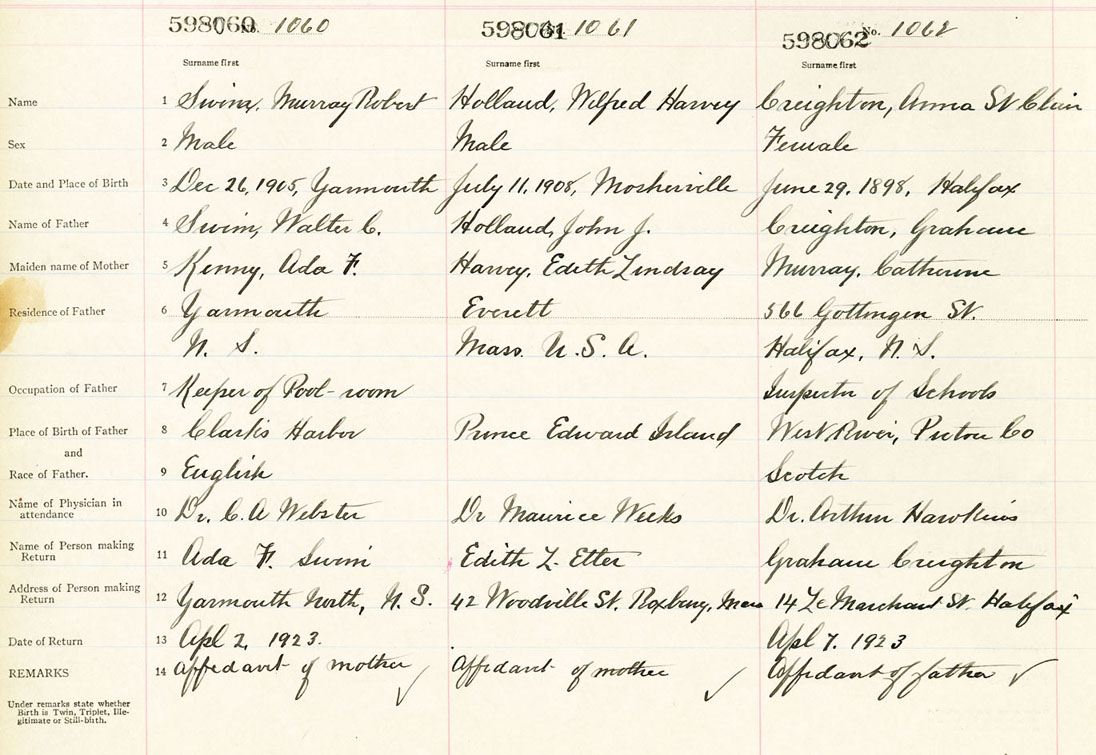 598060 No. 1060 598061 No. 1061 598062 No. 1062
Surname first Surname first Surname first
Name 1 Swim, Murray Robert Holland, Wilfred Harvey Creighton, Anna St Clair
Sex 2 Male Male Female
Date and Place of Birth 3 Dec 26, 1905, Yarmouth July 11, 1908, Mosherville June 29, 1898, Halifax
Name of Father 4 Swim, Walter C. Holland, John J. Creighton, Graham
Maiden name of Mother 5 Kenny, Ada F. Harvey, Edith Lindsay Murray, Catherine
Residence of Father 6 Yarmouth Everett 566 Gottingen St.
N. S. Mass. U. S. A. Halifax, N. S.
Occupation of Father 7 Keeper of Pool-room Inspector of Schools
Place of Birth of Father 8 Clark's Harbor Prince Edward Island West River, Pictou Co
and
Race of Father. 9 English Scotch
Name of Physician in attendance 10 Dr. C. A Webster Dr Maurice Weeks Dr. Arthur Hawkins
Name of Person making Return 11 Ada F. Swim Edith L. Etter Graham Creighton
Address of Person making Return 12 Yarmouth North, N. S. 42 Woodville St. Roxbury, Mass 14 Le Marchant St. Halifax
Date of Return 13 Apl 2, 1923. Apl 7. 1923
REMARKS 14 Affidavit of mother ✓ Affidavit of mother ✓ Affidavit of father ✓
Under remarks state whether
Birth is Twin, Triplet, Ille-
gitimate or Still-birth.